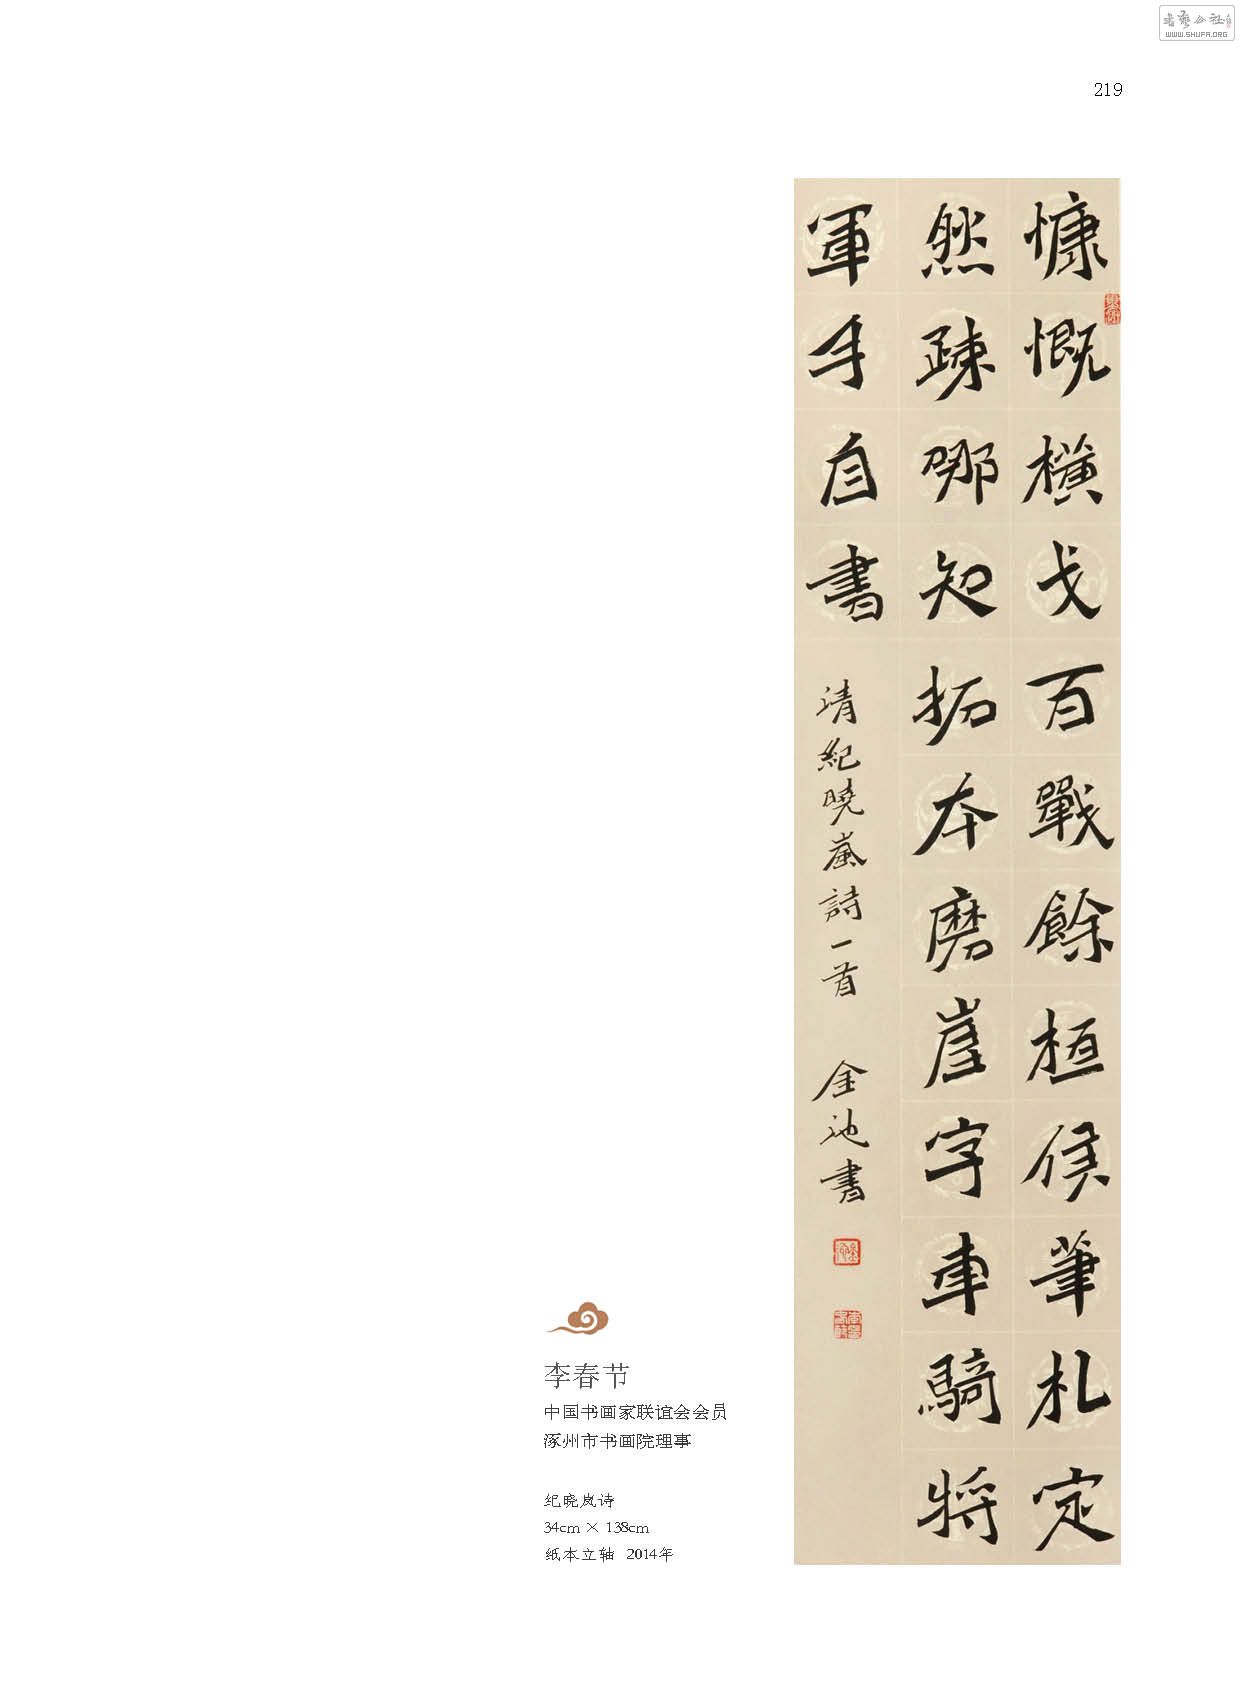 书艺公社
WWW.SHUFA.ORG
219
慷慨横戈百戰餘桓侯筆札定
然疎哪知拓本磨崖字車騎將
軍手自書
清紀曉嵐詩一首 金池書
李春节
中国书画家联谊会会员
涿州市书画院理事
纪晓岚诗
34cm × 138cm
纸本立轴 2014年